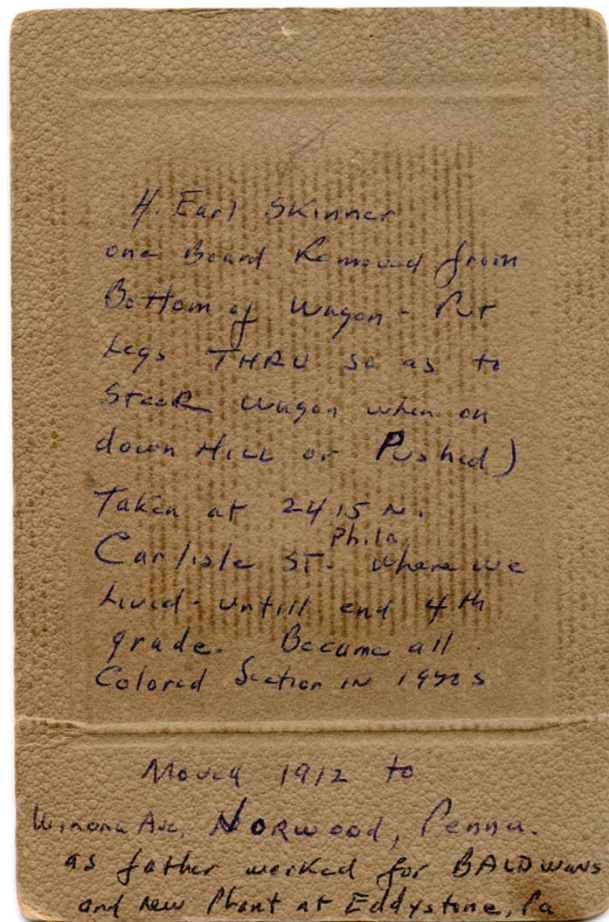 H. Earl Skinner
one Board Removed from
Bottom of Wagon - Put
Legs THRU so as to
steer wagon when on
down HILL or Pushed)
Taken at 2415 N.
Phila,
Carlisle ST. where we
Lived - untill end 4th
grade. Became all
Colored Section IN
Moved 1912 to
Winona Ave, NORWOOD, Penna.
as father worked for BALDWINS
and new Plant at Eddystone, Pa